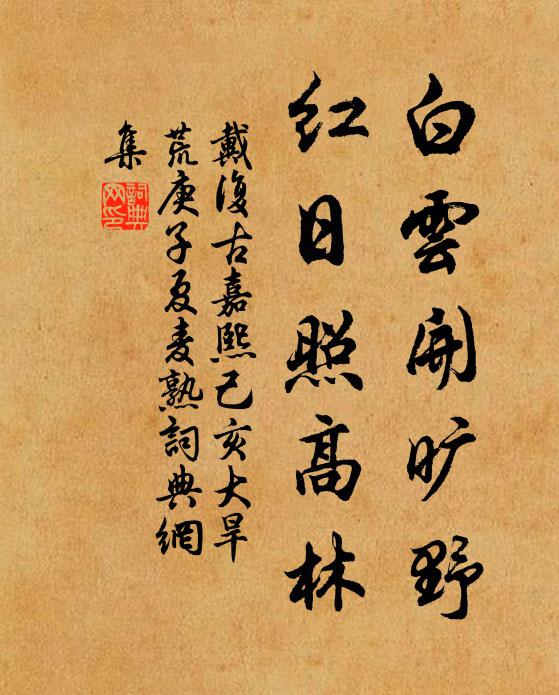 白雲開旷野
紅日照高林
戴復古嘉熙己亥大旱
荒庚子夏麦熟詞典網
集
詞典
网印